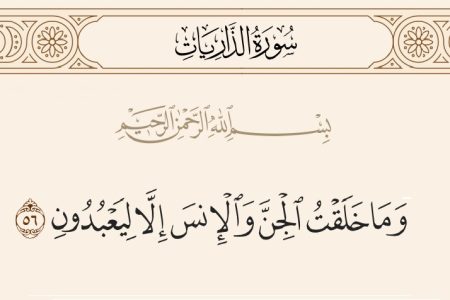 سُورَةُ الذَّارِيَاتِ
بِسْمِ اللَّهِ الرَّحْمَٰنِ الرَّحِيمِ
وَمَا خَلَقْتُ ٱلْجِنَّ وَٱلْإِنسَ إِلَّا لِيَعْبُدُونِ ٥٦